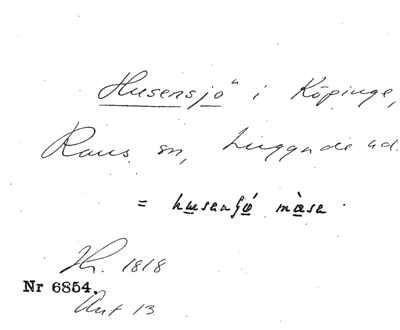 Husensjö" i Köpinge,
Raus sn, Luggude hd.
= husensjö́ màse
Jh. 1818
Nr 6854.
Ant 13